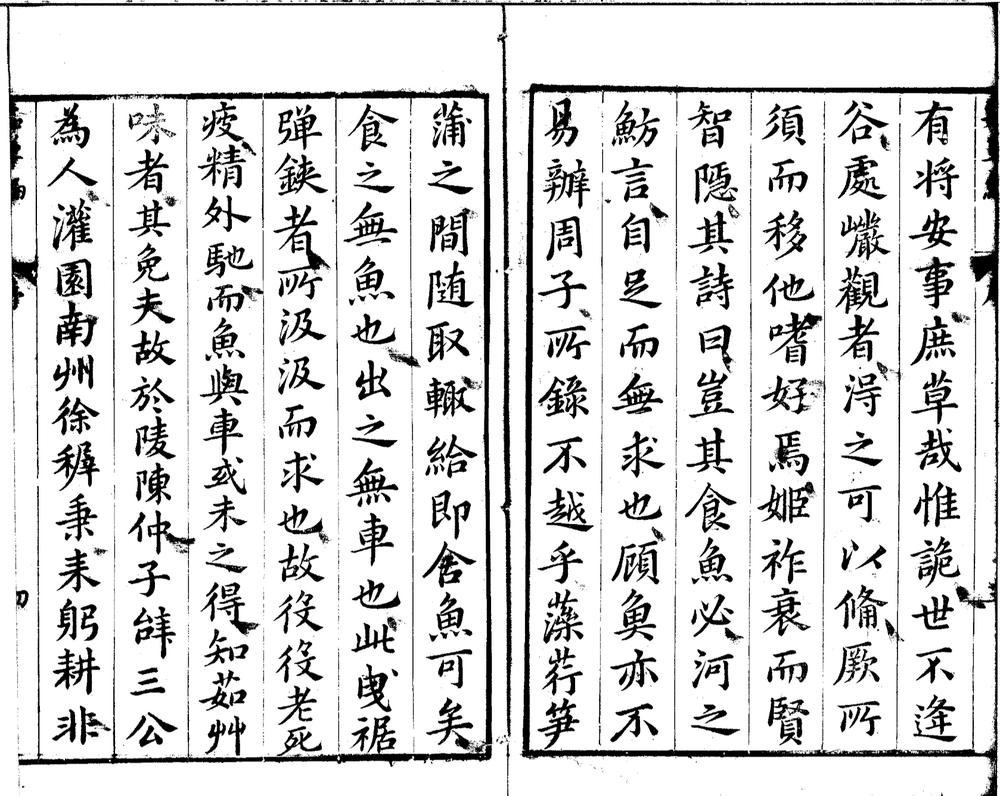 有将安事庶草哉惟詭世不逢
谷處巗觀者淂之可以俻厥所
須而移他嗜好焉姬祚衰而賢
智隱其詩曰豈其食魚必河之
魴言自足而無求也顧魚亦不
易辦周子所錄不越乎藻荇笋
蒲之間随取輙給即舍魚可矣
食之無魚也出之無車也此曵裾
弹鋏者所汲汲而求也故役役老死
疲精外馳而魚與車或未之得知茹艸
味者其免夫故於陵陳仲子辝三公
為人灌園南州徐穉秉耒躬耕非